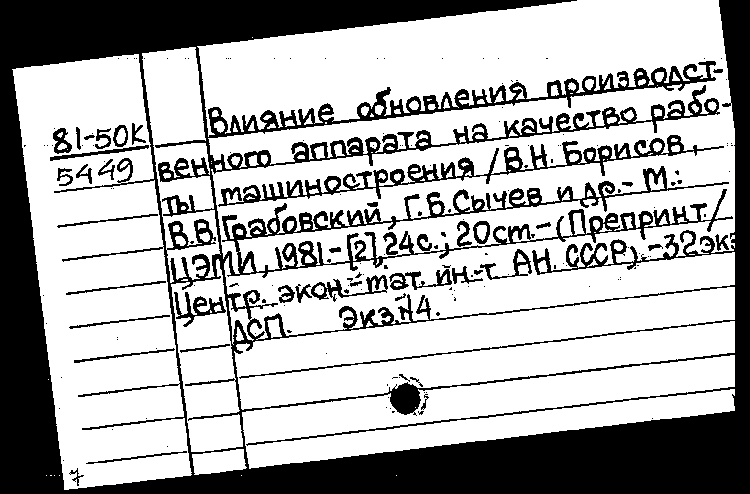 81-50К
5449
Влияние обновления производст-
венного аппарата на качество рабо-
ты машиностроения / В.Н. Борисов,
В.В. Грабовский, Г.Б. Сычев и др. - М.:
ЦЭМИ, 1981. - [2], 24с.; 20см. - (Препринт /
Центр. экон.-мат. ин-т АН. СССР). - 32экз
ДСП. Экз. N4.
7